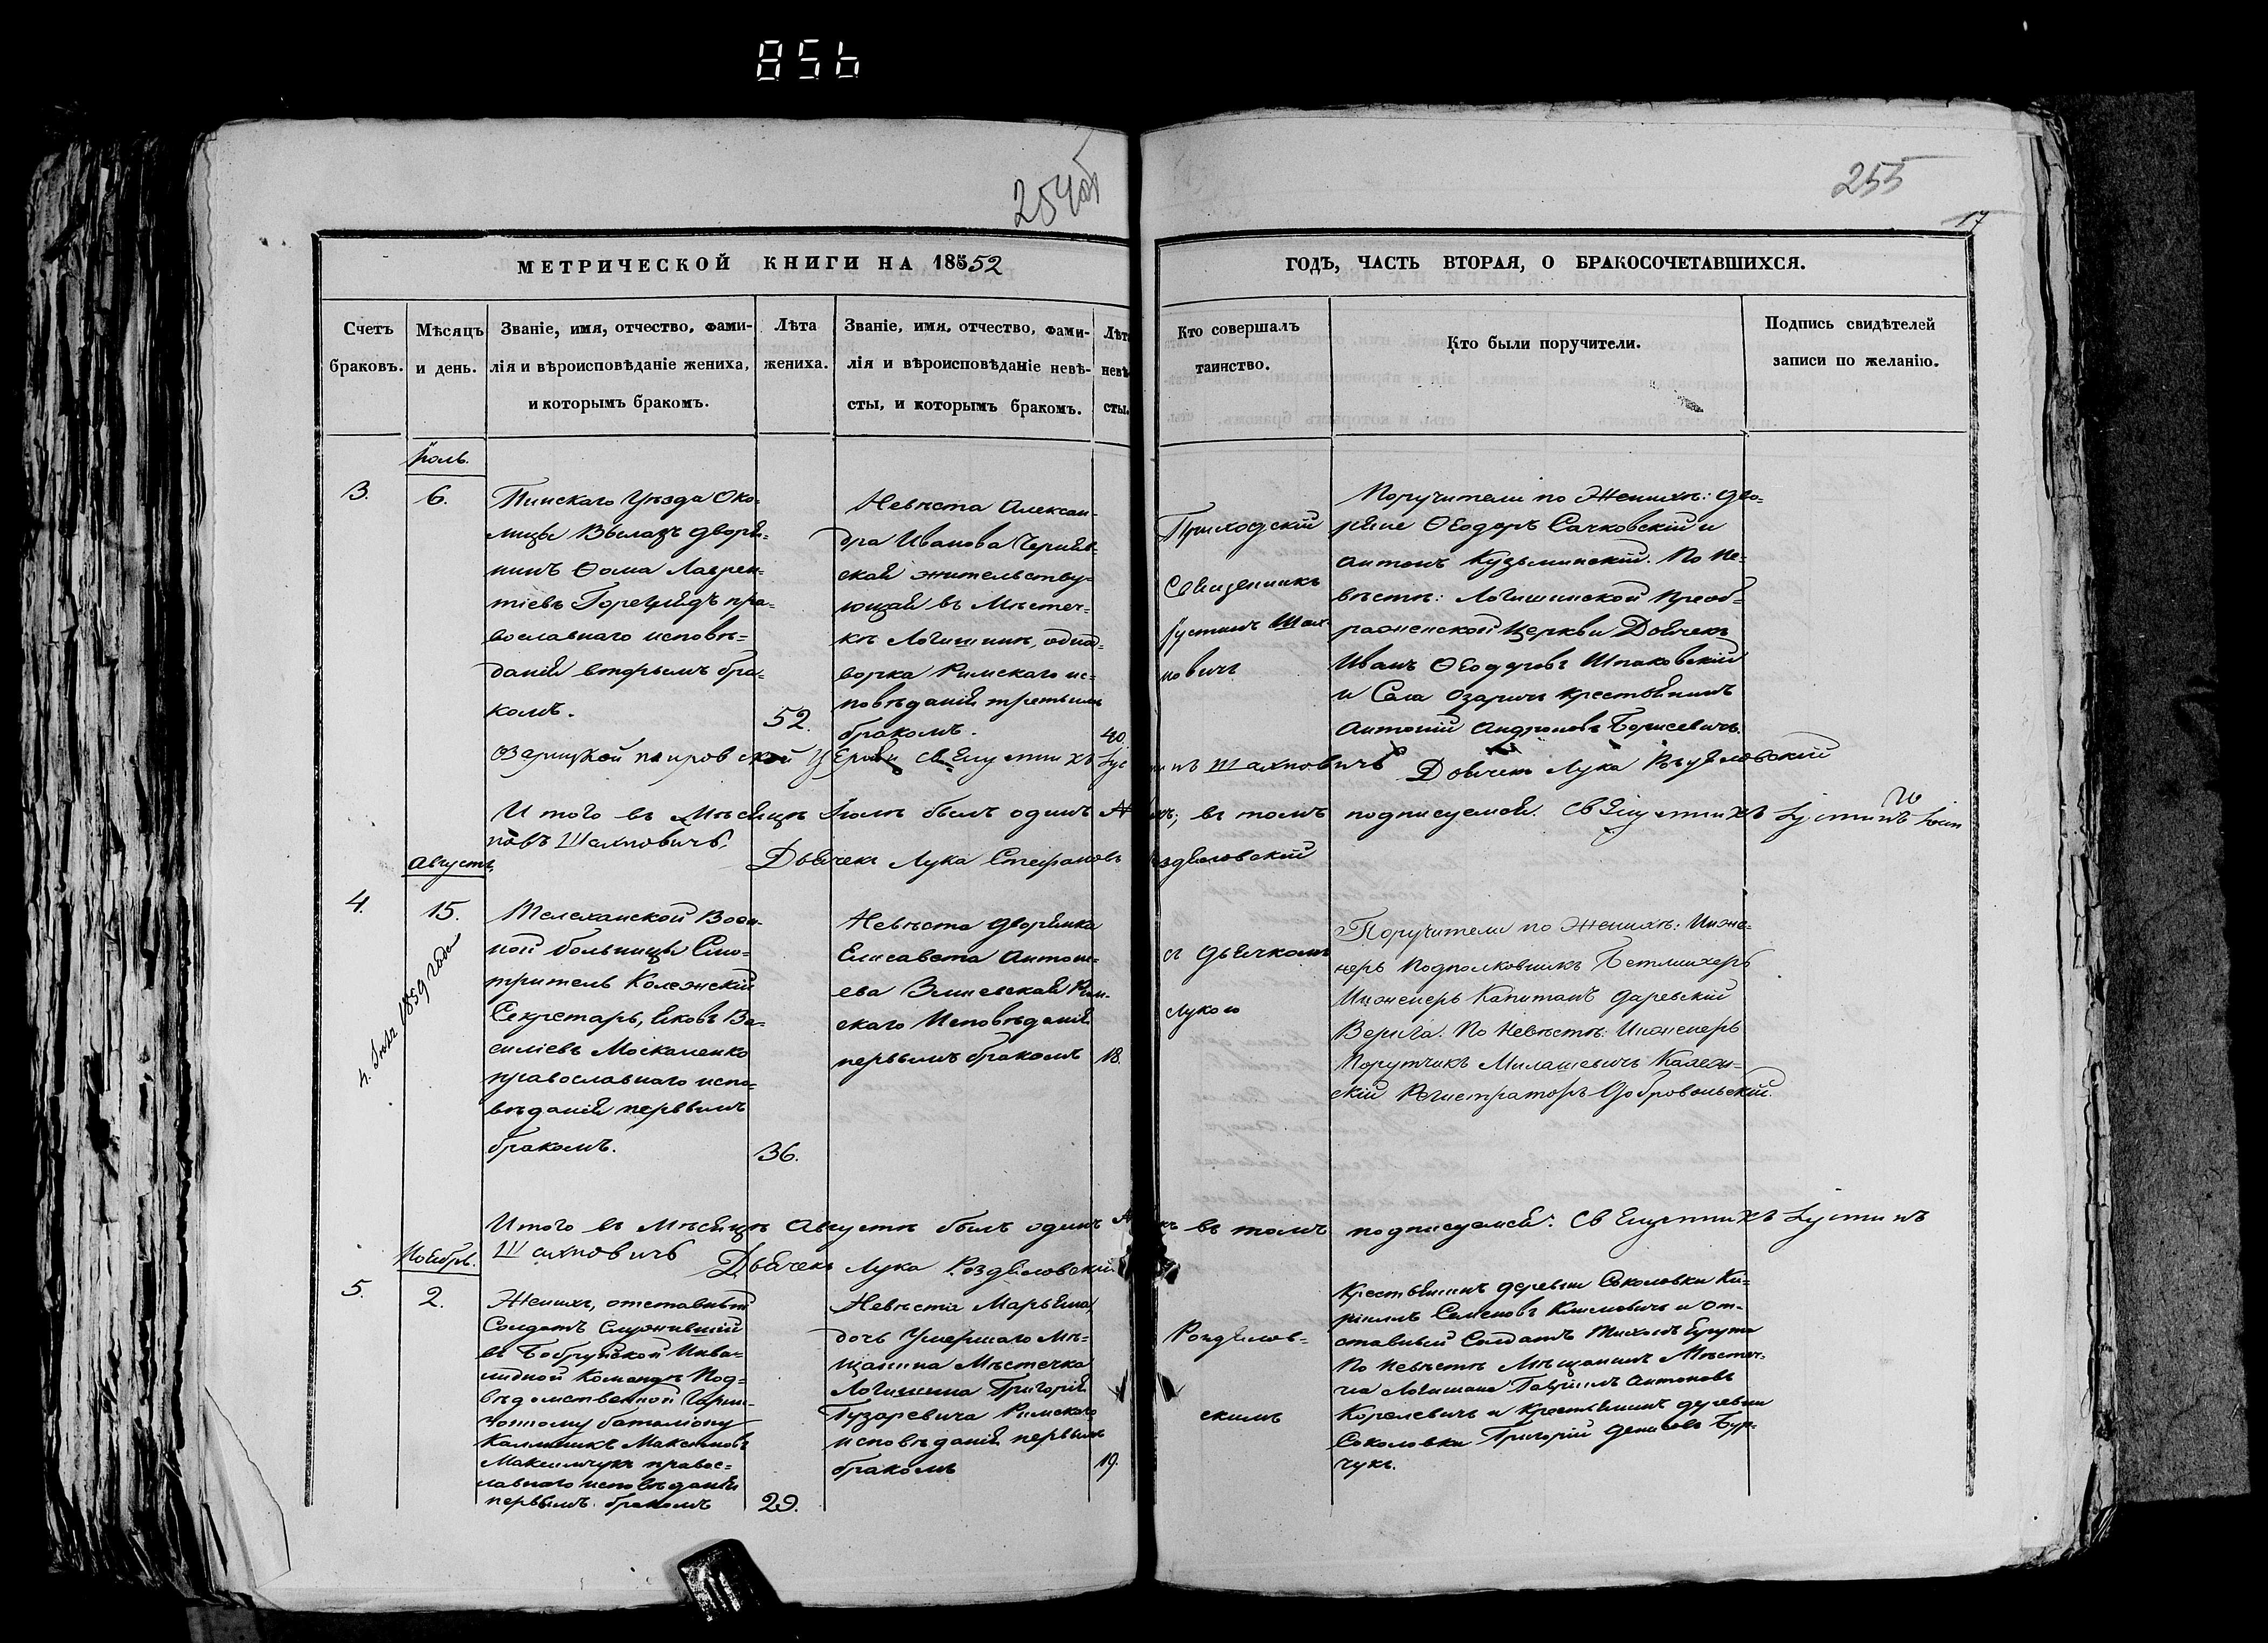 856
254об
255
17
МЕТРИЧЕСКОЙ КНИГИ НА 18552
ГОДЪ, ЧАСТЬ ВТОРАЯ, О БРАКОСОЧЕТАВШИХСЯ.
Счетъ
браковъ.
Мѣсяцъ
и день.
Званіе, имя, отчество, фами-
лія и вѣроисповѣданіе жениха,
и которымъ бракомъ.
Лѣта
жениха.
Званіе, имя, отчество, фами-
лія и вѣроисповѣданіе невѣ-
сты, и которымъ бракомъ.
Лѣта
невѣ-
сты.
Кто совершалъ
таинство.
Кто были поручители.
Подпись свидѣтелей
записи по желанію.
Іюль.
3.
6.
Пинскаго Уѣзда Око=
лицы Вылазъ дворя=
нинъ Ѳома Лаврен=
тіевъ Горегляд пра=
вославнаго исповѣ=
данія вторымъ бра=
комъ.
52.
Невѣста Алексан-
дра Иванова Черняв-
ская жительству=
ющая въ Мѣстеч=
кѣ Логишинѣ, одно=
ворка Римскаго ис=
повѣданія третьимъ
бракомъ.
40.
Приходскій
Священникъ
Іустинъ Шах-
новичъ
Поручители по Женихѣ: дво=
ряне Ѳеодоръ Сачковскій и
Антонъ Кузьминскій. По не=
вѣстѣ: Логишинской Преоб=
раженской Церкви Дьячекъ
Иванъ Ѳеодоровъ Шпаковскій
и Села Озаричъ крестьянинъ
Антоній Андроновъ Борисевичъ.
Озарицкой покровской Церкви Священникъ Іустинъ Шахновичъ Дьячекъ Лука Роздяловскій
Итого въ Мѣсяцѣ Іюлѣ былъ одинъ въ томъ подписуемся. Священникъ Іустинъ
новъ Шахновичъ,
Дьячекъ Лука Стефановъ Роздяловскій
Августъ.
4.
15.
4. Іюля 1859 года
Телеханской Воен-
ной больницы Смо=
тритель Колежскій
Секретарь, Яковъ Ва=
силіевъ Москаленко
православнаго испо=
вѣданія первымъ
бракомъ.
36.
Невѣста дворянка
Елисавета Антоні-
ева Рим-
скаго Исповѣданія
первымъ бракомъ
18.
съ дьячкомъ
Лукою
Поручители по Женихѣ: Инже=
неръ Подполковникъ
Инженеръ Капитанъ Даревскій
Верига. По Невѣстѣ: Инженеръ
Порутчикъ Милашевичъ Колеж=
скій Регистраторъ Добровольскій.
Итого въ Мѣсяцѣ Августѣ былъ одинъ въ томъ подписуемся: Священникъ Іустинъ
Шахновичъ Дьячекъ Лука Роздяловскій
Ноябрь.
5.
2.
Женихъ, отставный
Солдатъ Служившій
въ Бобруйской Инва=
лидной Командѣ Под=
вѣдомственной Гарни-
зонному баталіону
Каллиникъ Максимовъ
Максимчукъ правос=
лавнаго исповѣданія
первымъ бракомъ
29.
Невѣста Марьяна
дочь Умершаго Мѣ=
щанина Мѣстечка
Логишина Григорія
Гузаревича Римскаго
исповѣданія первымъ
бракомъ
19.
Роздялов=
скимъ
Крестьянинъ деревни Соколовки Ки=
риллъ Семеновъ Климовичъ и От-
ставный Солдатъ
По невѣстѣ Мѣщанинъ Мѣстеч-
ка Логишина Гавріилъ Антоновъ
Королевичъ и Крестьянинъ деревни
Соколовки Григорій Денисовъ Бур-
чукъ.